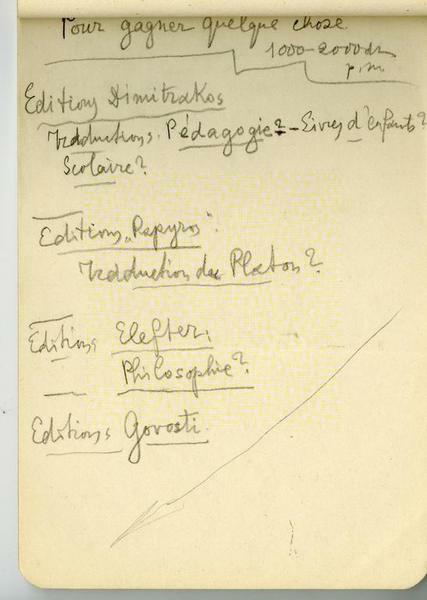 Pour gagner quelque chose
1000-2000 dr
p.m.
Editions Dimitrakos
Traductions. Pédagogie? - Livres d'enfants?
Scolaire?
Editions „Papyros“.
Traduction du Platon?
Editions Elefter:
Philosophie?
Editions Govosti.